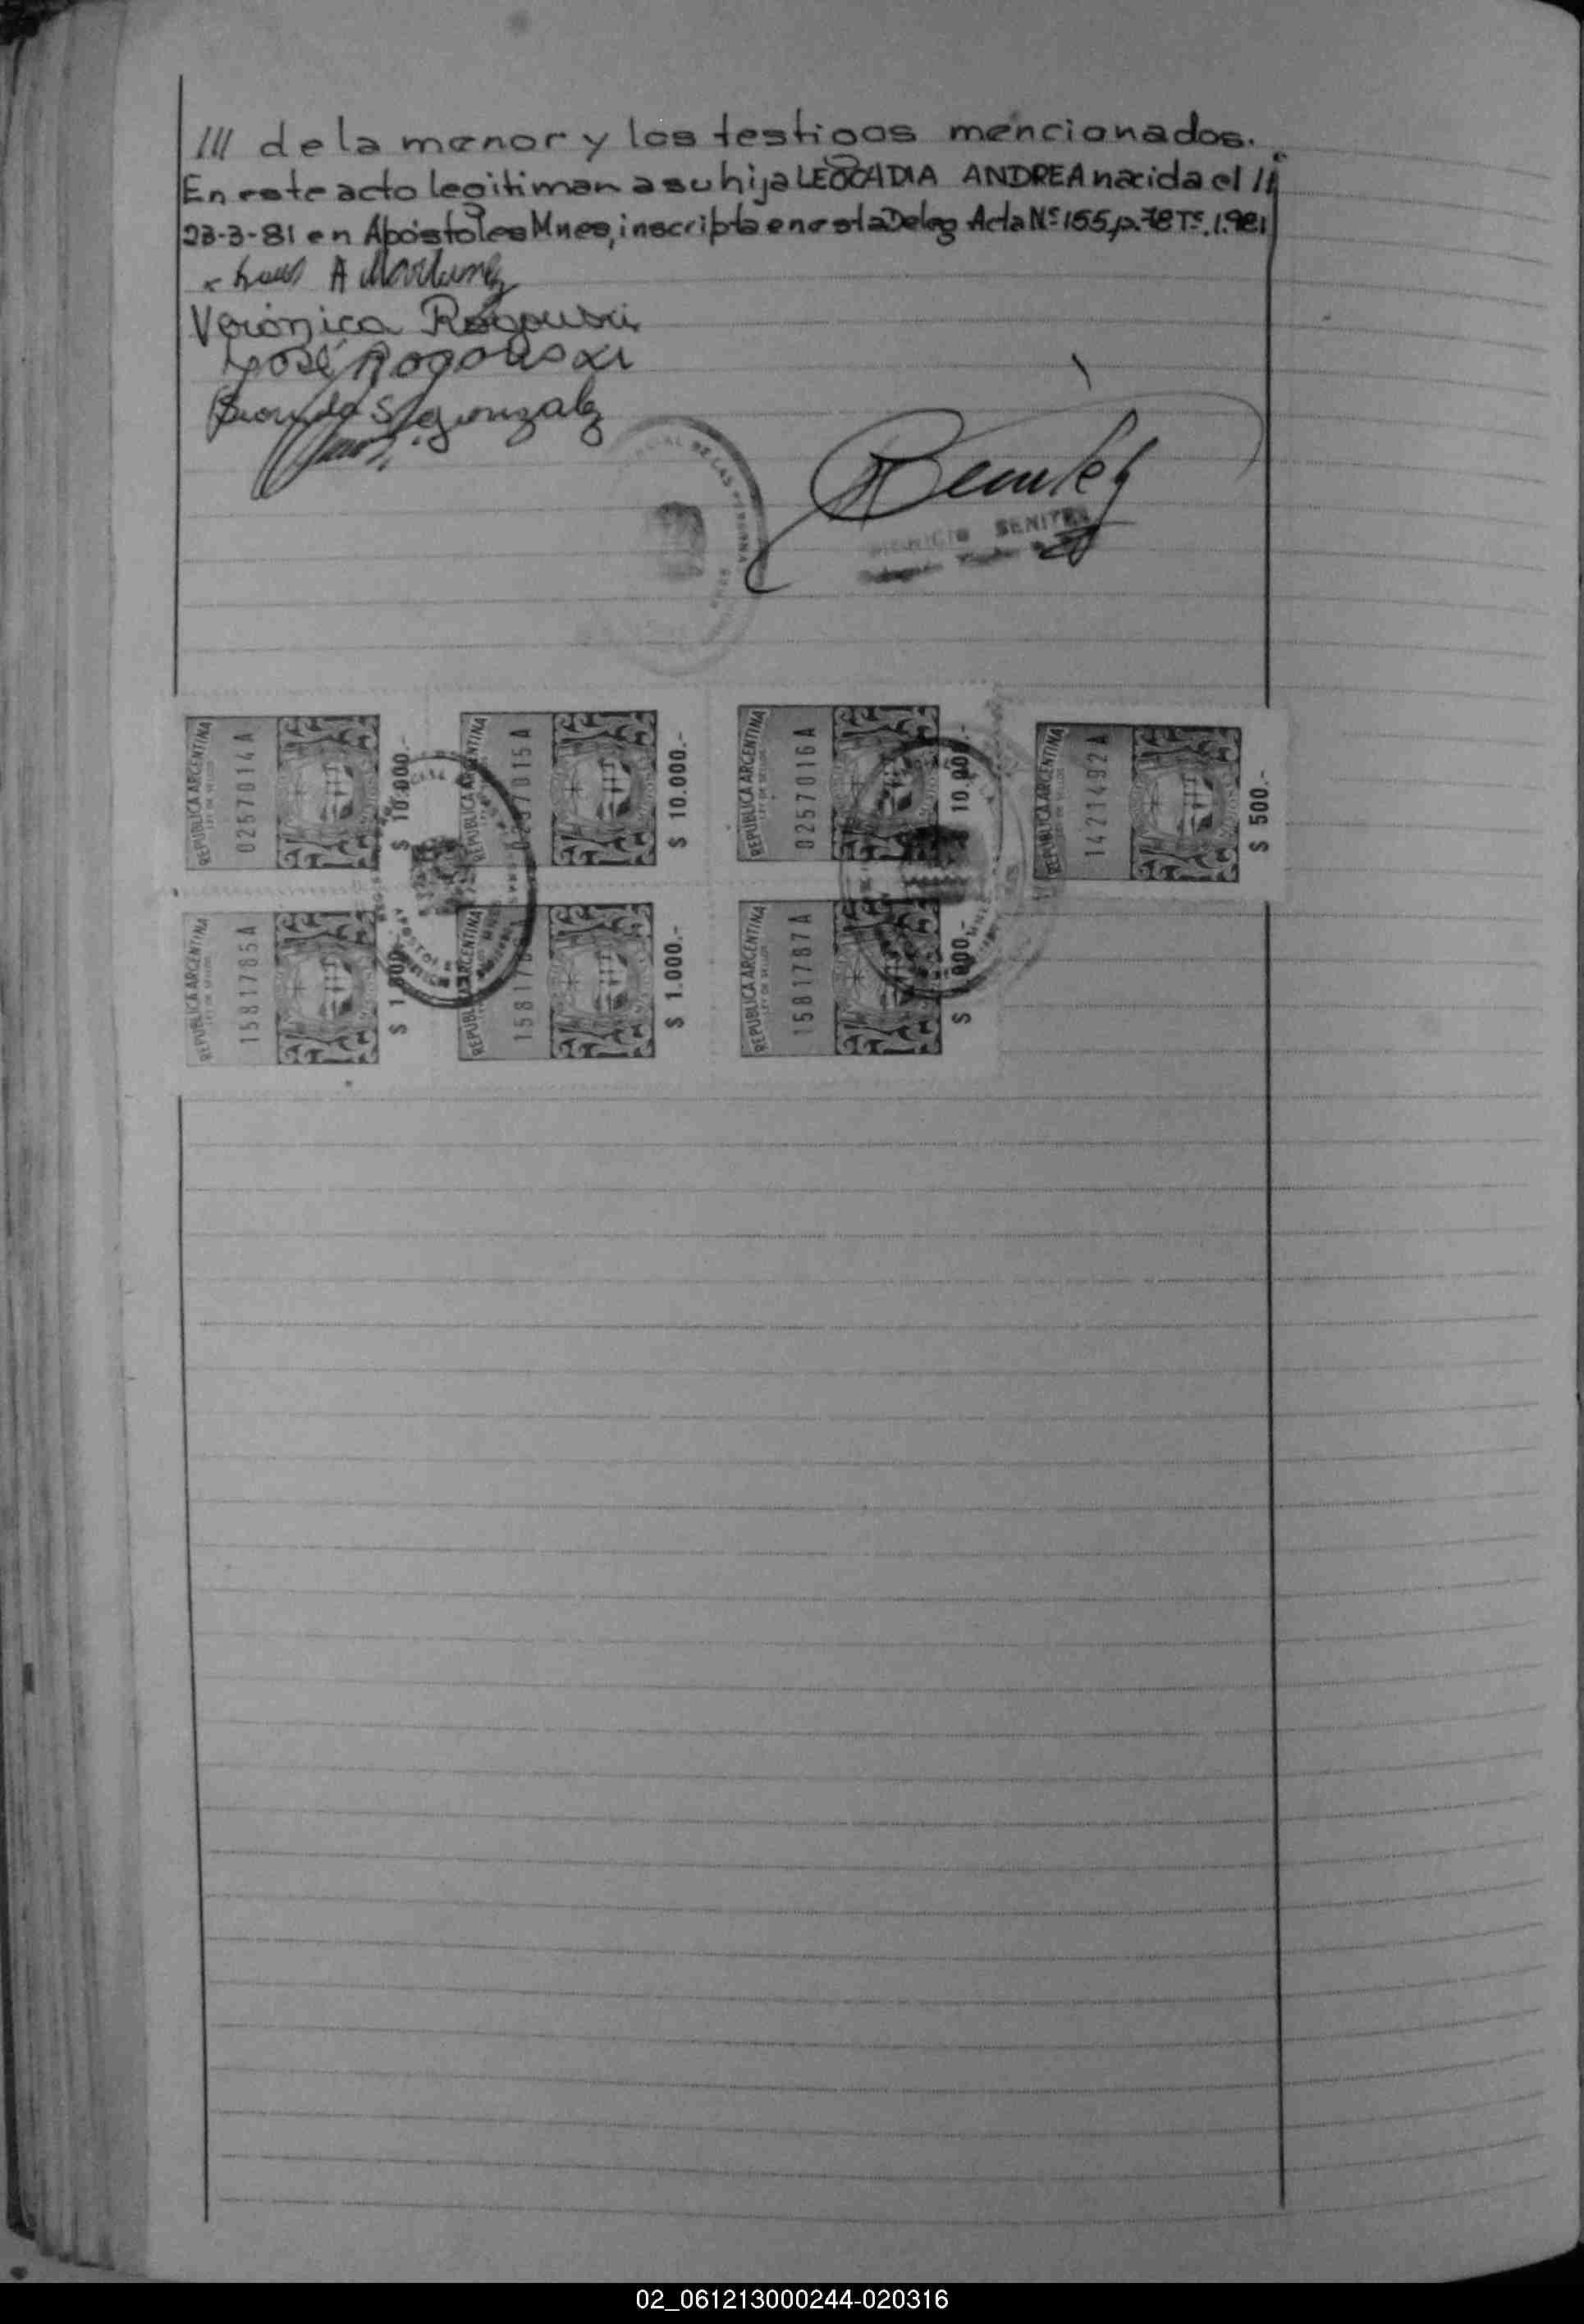 /// de la menor y los testigos mencionados.
En este acto legitiman a su hija LEOCADIA ANDREA nacida el //
23-3-81 en Apóstoles Mnes, inscripta en esta Deleg Acta Nº 155, p. 78 Tº. 1.981
A Martinez
Verónica Rogowski
José Rogowski
S González
Benitez
BENITEZ
REPUBLICA ARGENTINA
0257014A
$ 10.000.-
REPUBLICA ARGENTINA
0257015A
$ 10.000.-
REPUBLICA ARGENTINA
0257016A
10.00
REPUBLICA ARGENTINA
1421492A
$ 500.-
REPUBLICA ARGENTINA
1581785A
$ 1.000.-
REPUBLICA ARGENTINA
1581786
$ 1.000.-
REPUBLICA ARGENTINA
1581787A
$ 000.-
02_061213000244-020316